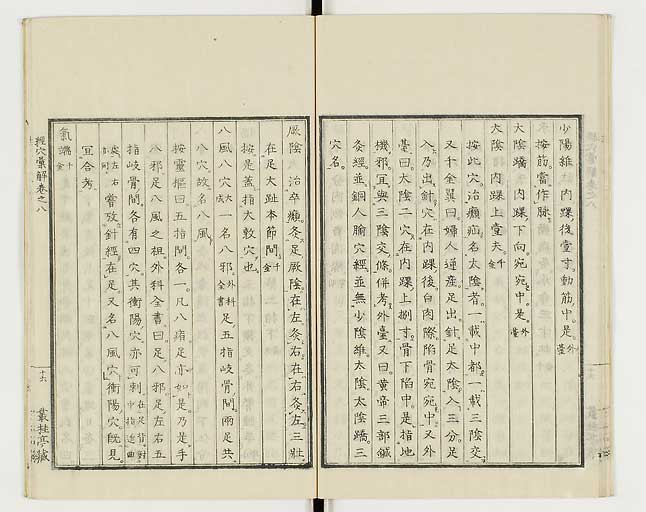 少陽維 内踝後壹寸。動筋中。是。外臺
按筋。當作脉。
太陰蹻 内踝下向宛宛中。是。外臺
太陰 内踝上壹夫 千金
按此穴。治癲疝。名太陰者。一載中都。一載三陰交。
又千金翼曰。婦人逆產。足出。針足太陰。入三分。足
入乃出針。穴在内踝後白肉際陷骨宛宛中。又外
臺曰。太陰二穴。在内踝上捌寸。骨下陷中。是。指地
機邪。宜與三陰交條併考。外臺又曰。黄帝三部鍼
灸經。並銅人腧穴經。並無少陰維。太陰。太陰蹻。三
穴名。
厥陰 治卒癲。灸足厥陰。在左灸右。在右灸左。三壯。
在足大趾本節間。千金
按是蓋指大敦穴也。
八風 八穴 大成 一名八邪。外科全書 足五指岐骨間。兩足共
八穴。故名八風。
按靈樞曰。五指間各一。凡八痏。足亦如是。乃是手
八邪。足八風之祖。外科全書曰。足八邪。足左右五
指岐骨間。各有四穴。其衝陽穴。亦可刺。
嘗攷針經。在足又名八風穴。衝陽穴。既見。
宜合考。
氣端 千金
經穴彙解卷之八
十六
叢桂亭藏